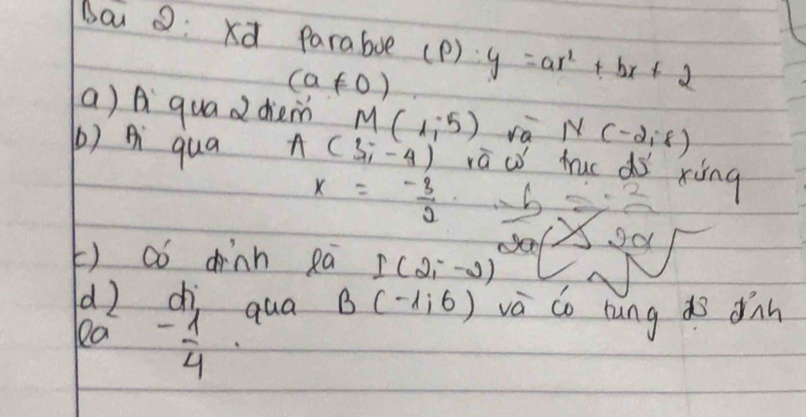 Bài 2: Xđ Parabol (P): y = ax² + bx + 2
(a ≠ 0)
a) Đi qua 2 điểm M(1;5) và N(-2;8)
b) Đi qua A(3;-4) và có trục đố xứng
x = -3/2 -b/2a
c) Có đỉnh là I(2;-2)
d) đi qua B(-1;6) và có tung độ đỉnh
là -1/4.